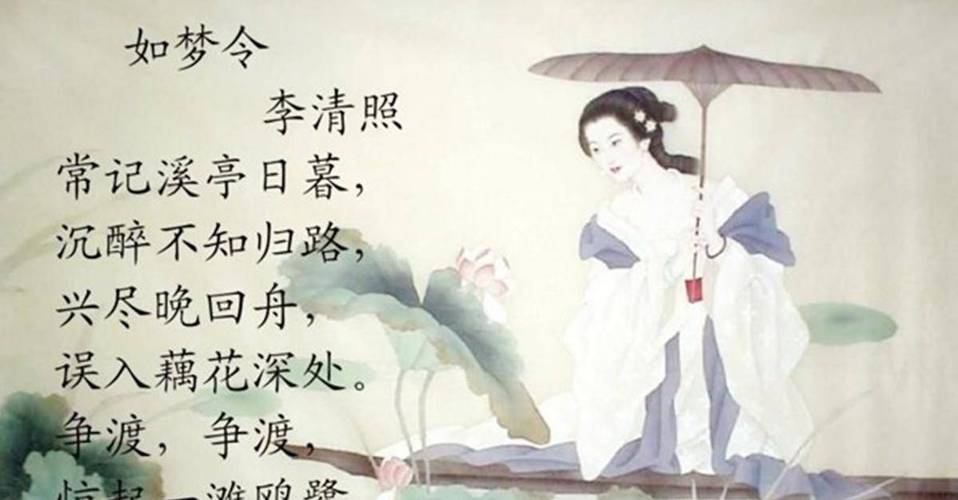 如梦令
李清照
常记溪亭日暮，
沉醉不知归路，
兴尽晚回舟，
误入藕花深处。
争渡，争渡，
惊起一滩鸥鹭